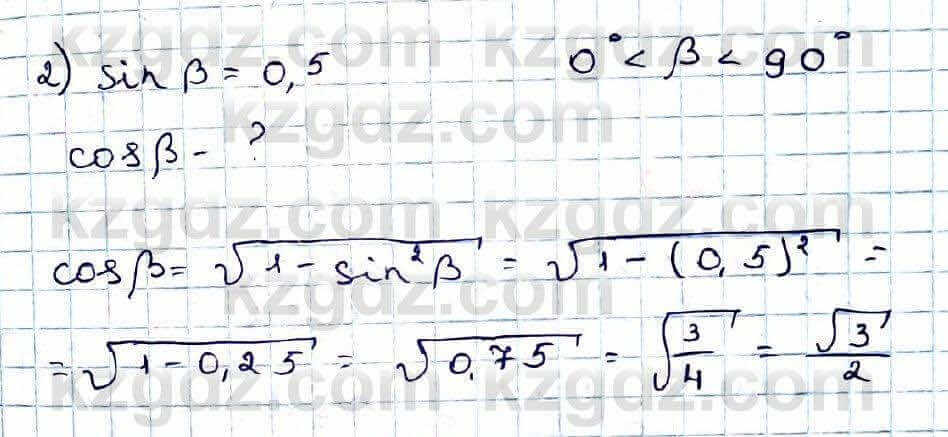 kzgdz.com kzgdz.com
2) sin β = 0,5 0° < β < 90°
kzgdz.com
cos β - ?
kzgdz.com kzgdz.com
cos β = √1 - sin² β = √1 - (0,5)² =
kzgdz.com
= √1 - 0,25 = √0,75 = √3/4 = √3/2
kzgdz.com kzgdz.com
kzgdz.com